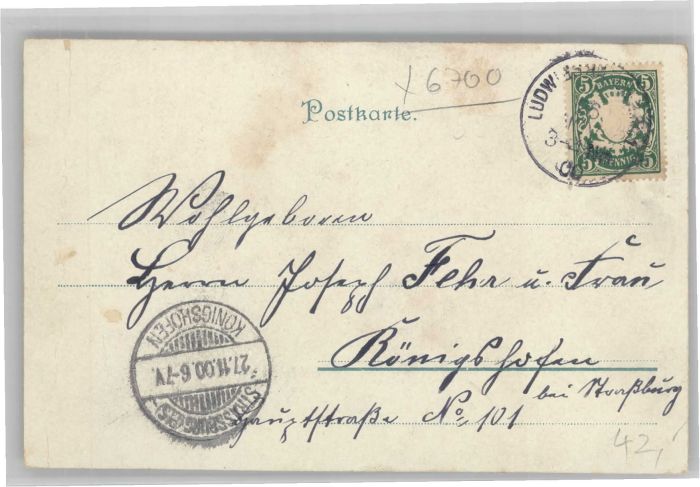 x 6700
Postkarte.
LUDW
3-
00
5 BAYERN 5
5 PFENNIG 5
Wohlgeboren
Herrn Joseph Fehr u. Frau
Königshofen
bei Straßburg
Hauptstraße No. 101
KÖNIGSHOFEN
27.11.00.6-7V.
STRASSBURG (ELS.)
42,